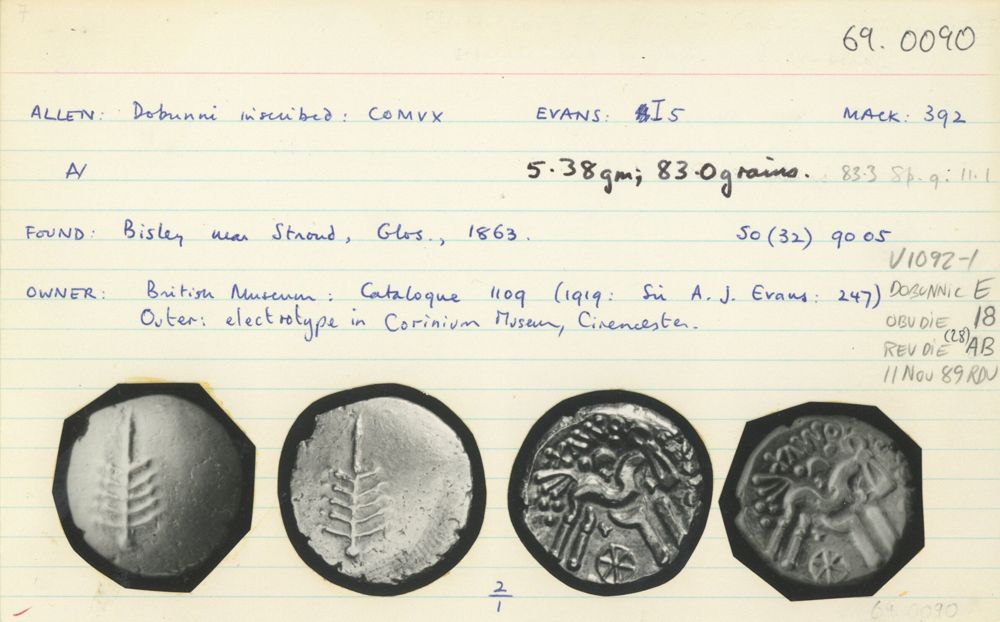 7
69.0090
ALLEN: Dobunni inscribed: COMVX EVANS: I5 MACK: 392
AV
5.38gm; 83.0grains. 83.3 Sp. g: 11.1
FOUND: Bisley near Stroud, Glos., 1863. SO(32) 9005
V1092-1
OWNER: British Museum: Catalogue 1109 (1919: Sir A.J. Evans: 247) DOBUNNIC E
Outer: electrotype in Corinium Museum, Cirencester. OBV DIE 18
REV DIE (28) AB
11 Nov 89 RDV
2
1
69.0090